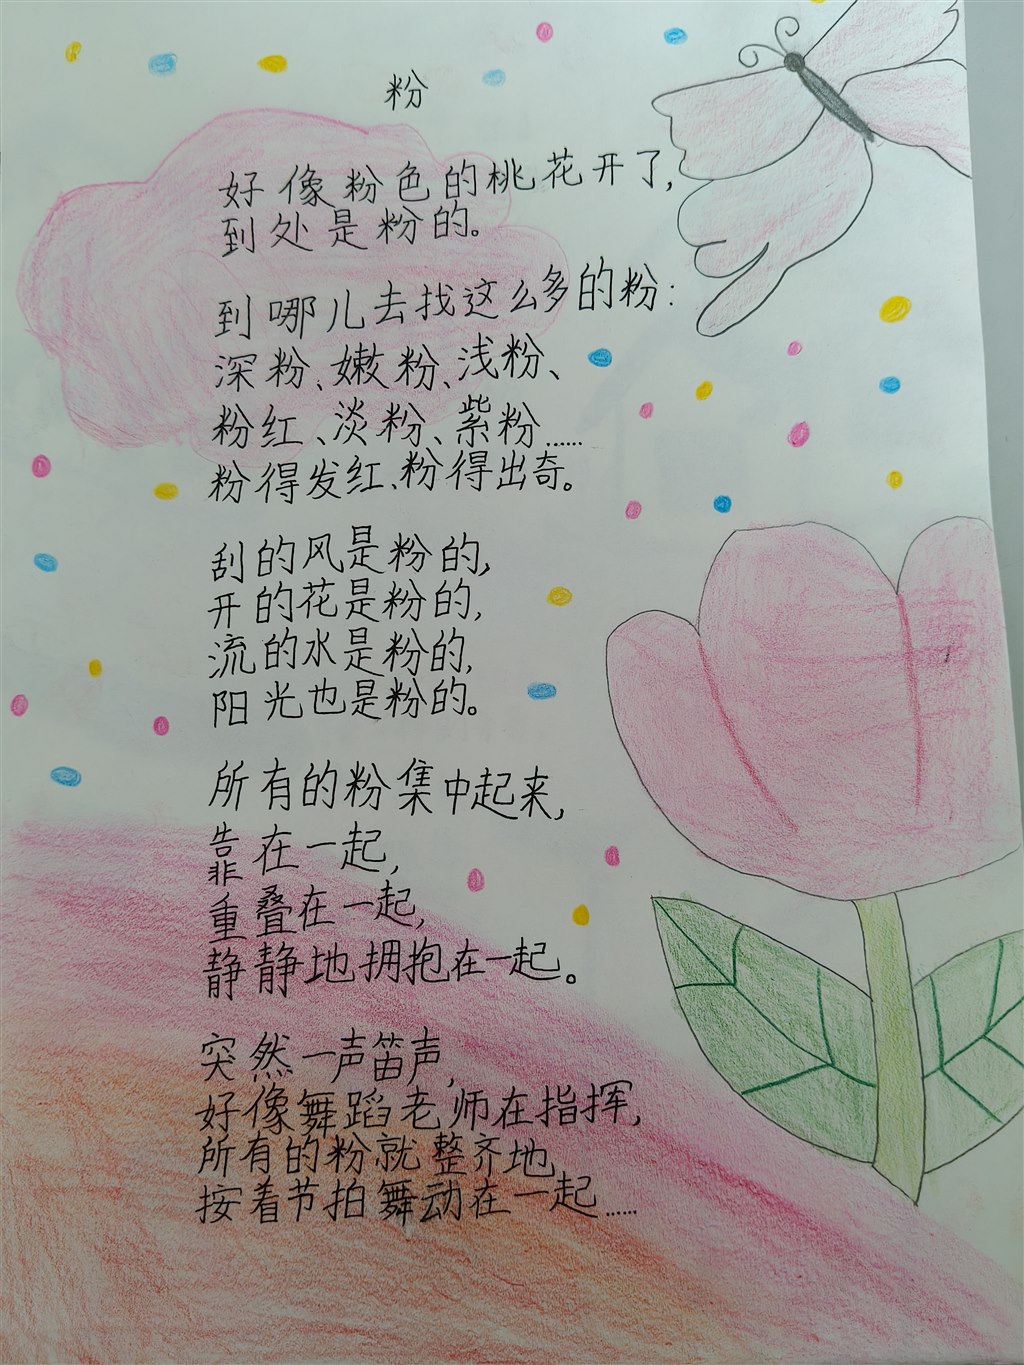 粉
好像粉色的桃花开了,
到处是粉的。
到哪儿去找这么多的粉:
深粉、嫩粉、浅粉、
粉红、淡粉、紫粉……
粉得发红、粉得出奇。
刮的风是粉的,
开的花是粉的,
流的水是粉的,
阳光也是粉的。
所有的粉集中起来,
靠在一起,
重叠在一起,
静静地拥抱在一起。
突然一声笛声,
好像舞蹈老师在指挥,
所有的粉就整齐地,
按着节拍舞动在一起……